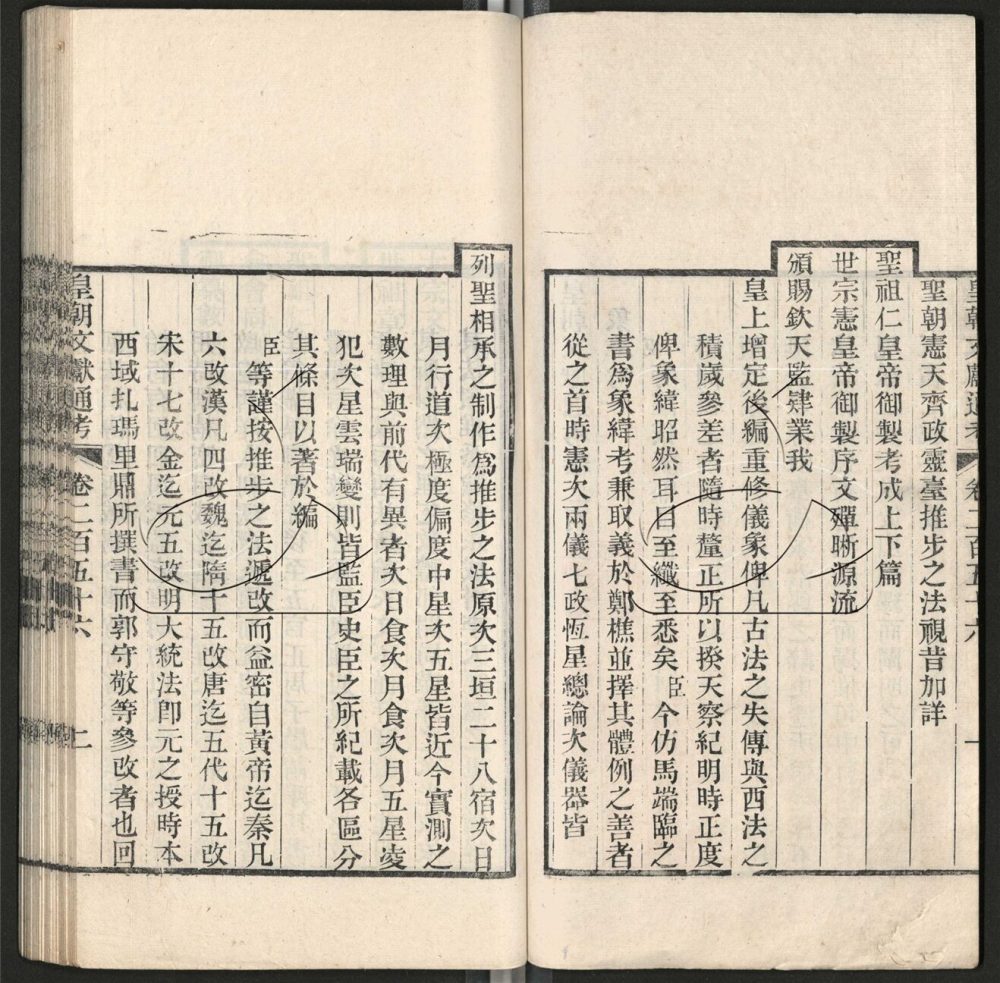 皇朝文獻通考 卷二百五十六 一
聖朝憲天齊政靈臺推步之法視昔加詳
聖祖仁皇帝御製考成上下篇
世宗憲皇帝御製序文殫晰源流
頒賜欽天監肄業我
皇上增定後編重修儀象俾凡古法之失傳與西法之
積歲參差者隨時釐正所以揆天察紀明時正度
俾象緯昭然耳目至纖至悉矣臣今仿馬端臨之
書爲象緯考兼取義於鄭樵並擇其體例之善者
從之首時憲次兩儀七政恆星總論次儀器皆
列聖相承之制作爲推步之法原次三垣二十八宿次日
月行道次極度偏度中星次五星皆近今實測之
數理與前代有異者次日食次月食次月五星凌
犯次星雲瑞變則皆監臣史臣之所紀載各區分
其條目以著於編
臣等謹按推步之法遞改而益密自黃帝迄秦凡
六改漢凡四改魏迄隋十五改唐迄五代十五改
宋十七改金迄元五改明大統法卽元之授時本
西域扎瑪里鼎所撰書而郭守敬等參改者也回
皇朝文獻通考 卷二百五十六 二